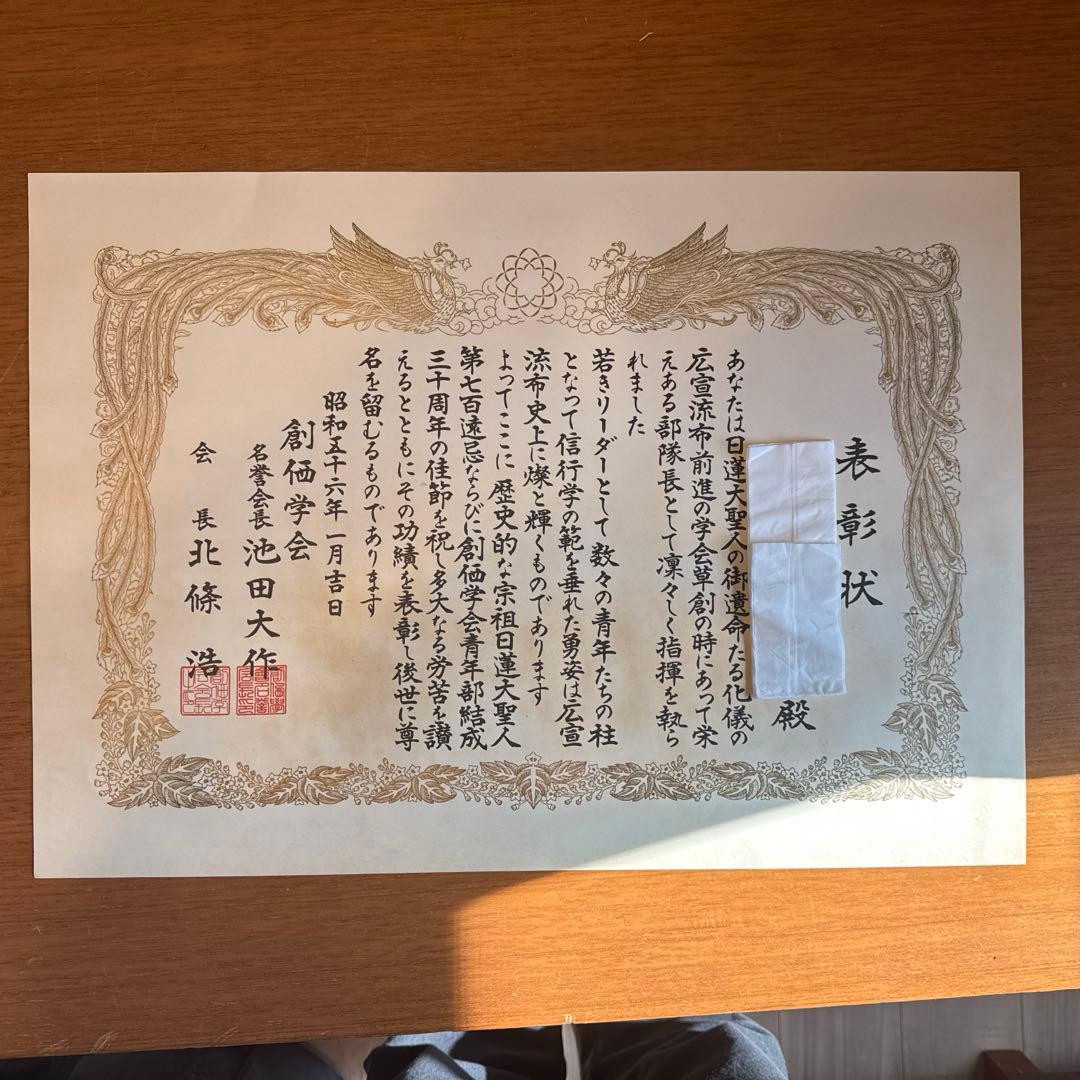 表彰状
殿
あなたは日蓮大聖人の御遺命たる化儀の
広宣流布前進の学会草創の時にあって栄
えある部隊長として凜々しく指揮を執ら
れました
若きリーダーとして数々の青年たちの柱
となって信行学の範を垂れた勇姿は広宣
流布史上に燦と輝くものであります
よってここに歴史的な宗祖日蓮大聖人
第七百遠忌ならびに創価学会青年部結成
三十周年の佳節を祝し多大なる労苦を讃
えるとともにその功績を表彰し後世に尊
名を留むるものであります
昭和五十六年一月吉日
創価学会
名誉会長 池田大作
会長 北條浩